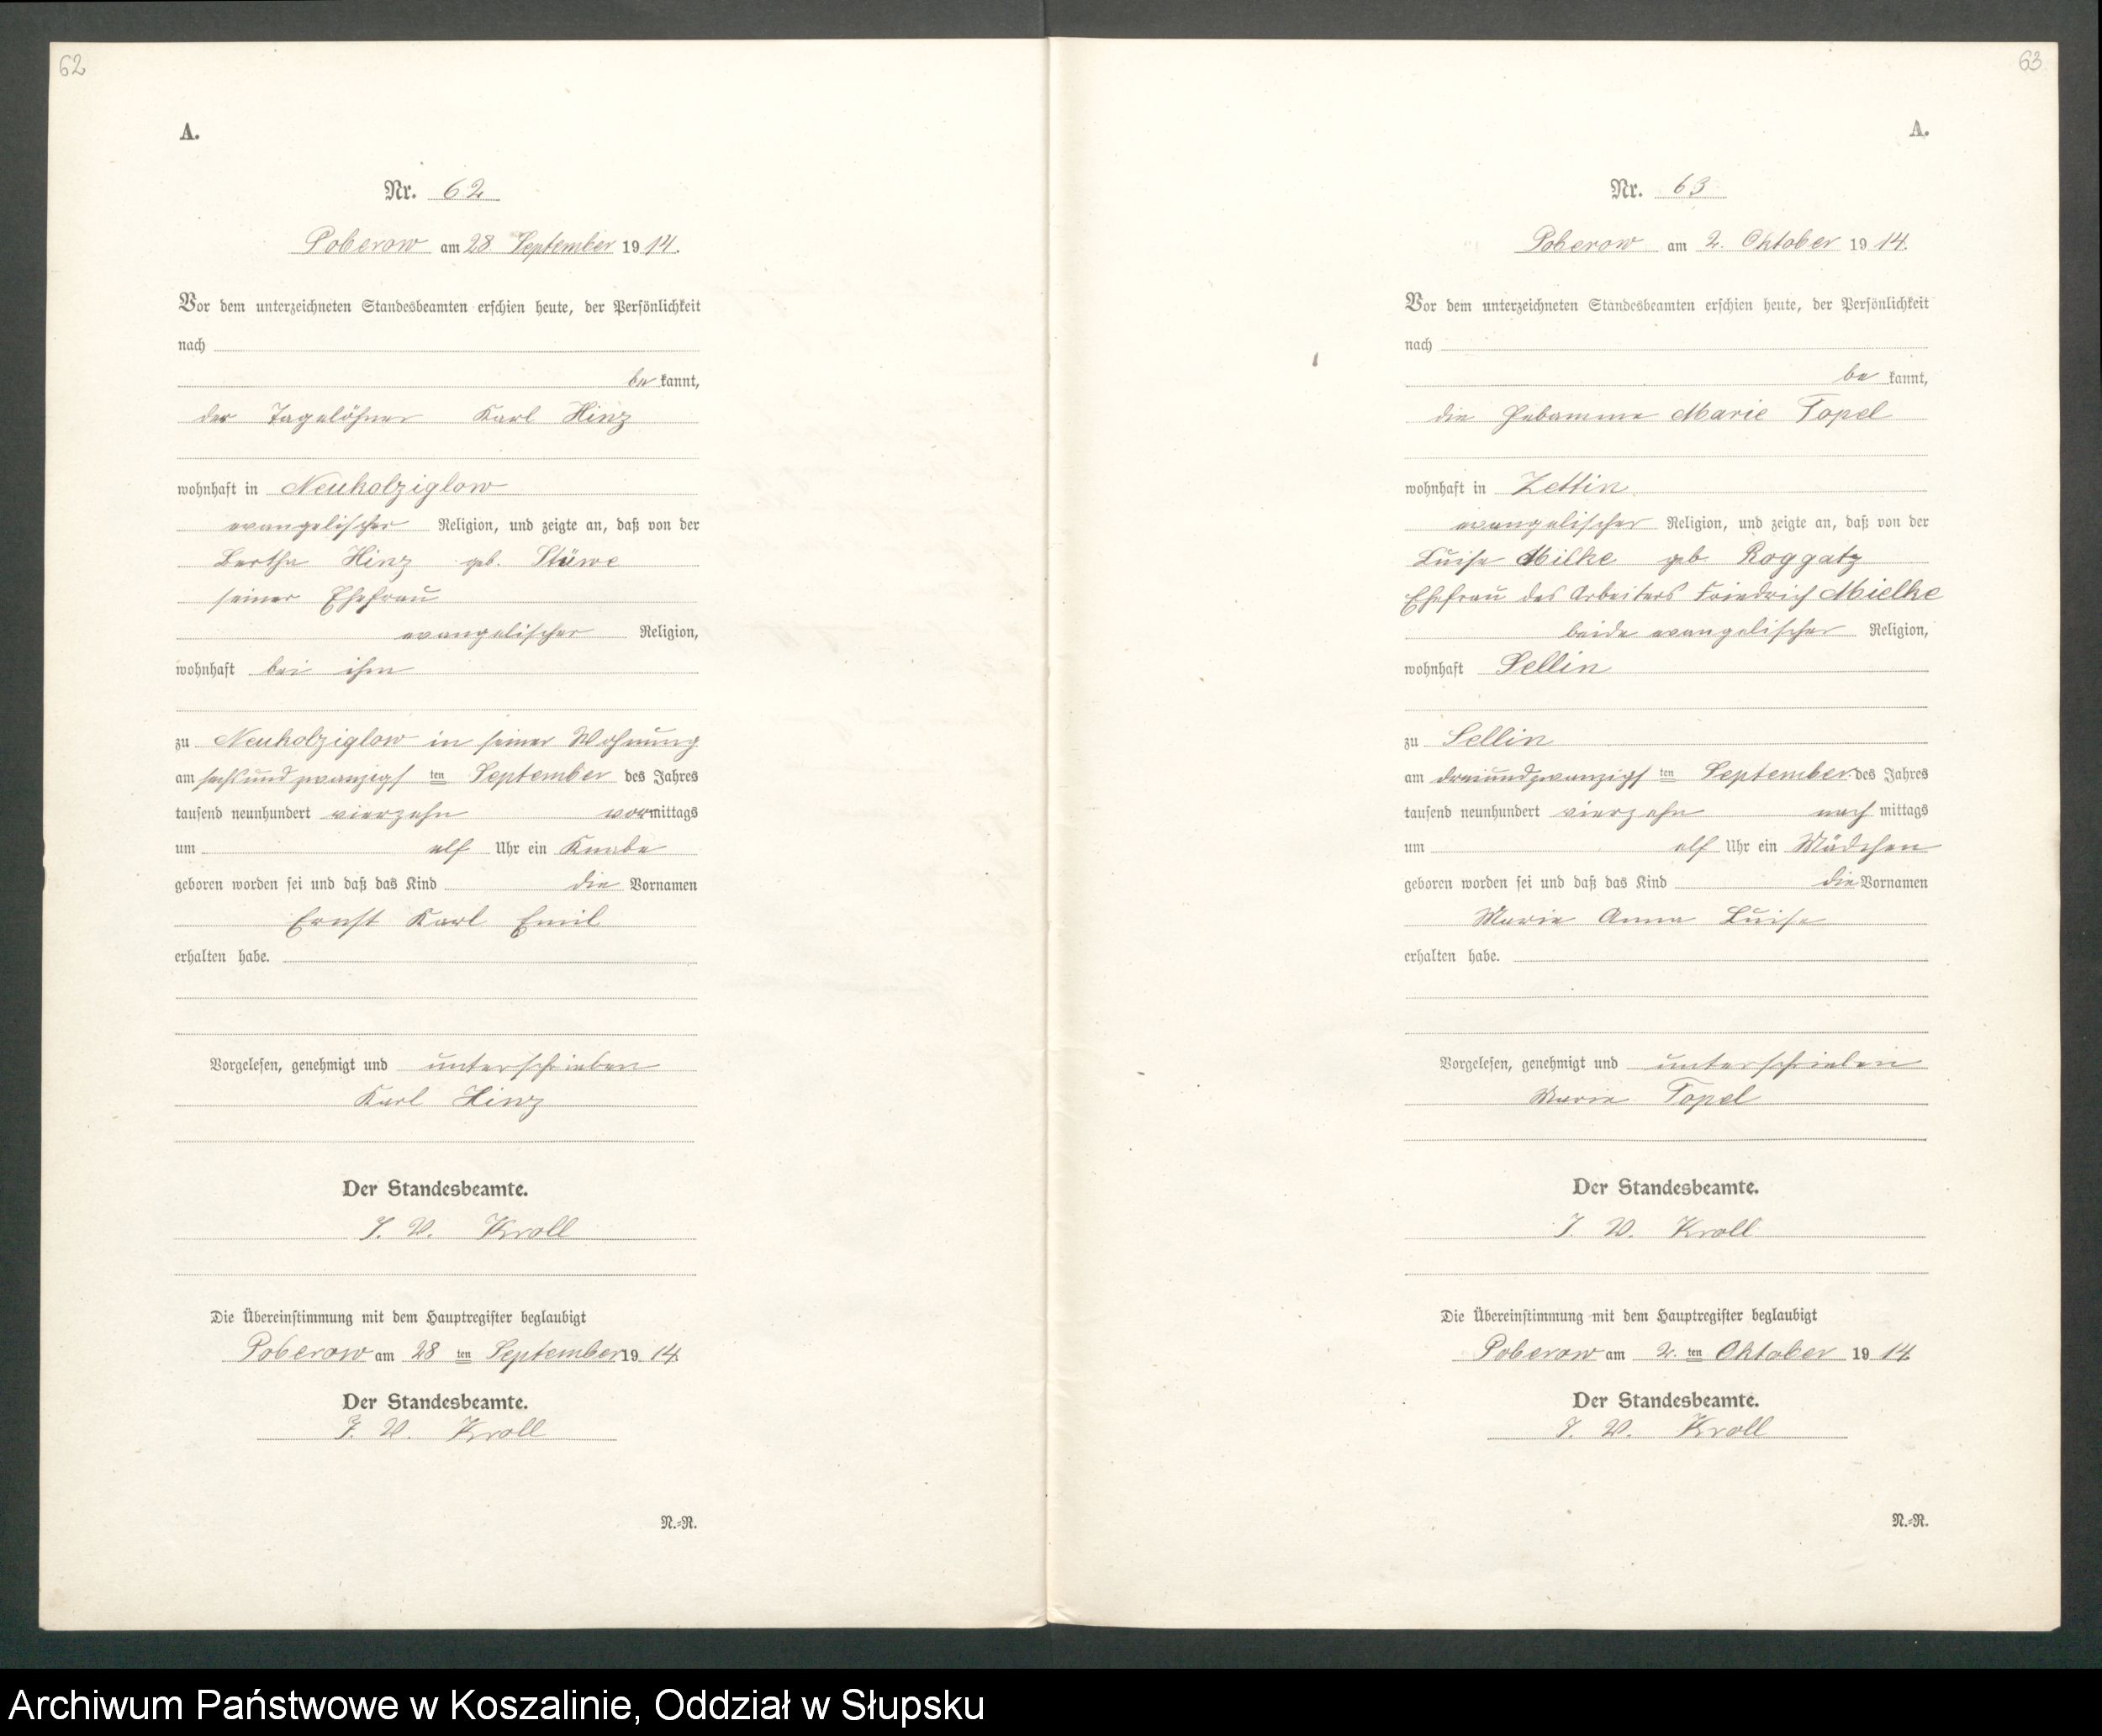 62
A.
Nr. 62
Poberow am 28 September 1914.
Vor dem unterzeichneten Standesbeamten erschien heute, der Persönlichkeit
nach
be kannt,
der Tagelöhner Karl Hinz
wohnhaft in Neukolziglow
evangelischer Religion, und zeigte an, daß von der
Bertha Hinz geb. Stüwe
seiner Ehefrau
evangelischer Religion,
wohnhaft bei ihm
zu Neukolziglow in seiner Wohnung
am sechsundzwanzigs ten September des Jahres
tausend neunhundert vierzehn vormittags
um elf Uhr ein Knabe
geboren worden sei und daß das Kind die Vornamen
Ernst Karl Emil
erhalten habe.
Vorgelesen, genehmigt und unterschrieben
Karl Hinz
Der Standesbeamte.
J. V. Kroll
Die Übereinstimmung mit dem Hauptregister beglaubigt
Poberow am 28 ten September 1914.
Der Standesbeamte.
J. V. Kroll
N.-R.
63
A.
Nr. 63
Poberow am 2. Oktober 1914.
Vor dem unterzeichneten Standesbeamten erschien heute, der Persönlichkeit
nach
be kannt,
die Hebamme Marie Topel
wohnhaft in Zettin
evangelischer Religion, und zeigte an, daß von der
Luise Milke geb Roggatz
Ehefrau des Arbeiters Friedrich Mielke
beide evangelischer Religion,
wohnhaft Sellin
zu Sellin
am dreiundzwanzigs ten September des Jahres
tausend neunhundert vierzehn nach mittags
um elf Uhr ein Mädchen
geboren worden sei und daß das Kind die Vornamen
Marie Anna Luise
erhalten habe.
Vorgelesen, genehmigt und unterschrieben
Marie Topel
Der Standesbeamte.
J. V. Kroll
Die Übereinstimmung mit dem Hauptregister beglaubigt
Poberow am 2. ten Oktober 1914
Der Standesbeamte.
J. V. Kroll
N.-R.
Archiwum Państwowe w Koszalinie, Oddział w Słupsku